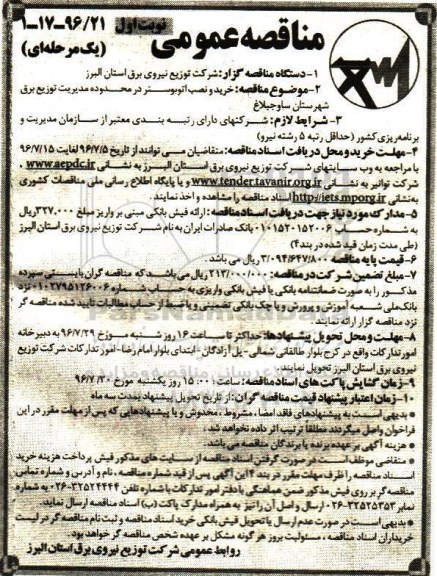 مناقصه عمومی نوبت اول ۹۶/۲۱-۱۷-۱
(یک مرحله‌ای)
۱- دستگاه مناقصه گزار: شرکت توزیع نیروی برق استان البرز
۲-موضوع مناقصه: خرید و نصب اتوبوستر در محدوده مدیریت توزیع برق
شهرستان ساوجبلاغ
۳- شرایط لازم: شرکتهای دارای رتبه بندی معتبر از سازمان مدیریت و
برنامه ریزی کشور (حداقل رتبه ۵ رشته نیرو)
۴-مهلت خرید و محل دریافت اسناد مناقصه: متقاضیان می توانند از تاریخ ۹۶/۷/۵ لغایت ۹۶/۷/۱۵
با مراجعه به وب سایتهای شرکت توزیع نیروی برق استان البرز به نشانی www.aepdc.ir ،
شرکت توانیر به نشانی www.tender.tavanir.org.ir و یا پایگاه اطلاع رسانی ملی مناقصات کشوری
به نشانی http://iets.mporg.ir اسناد مناقصه را مشاهده و اخذ نمایند.
۵-مدارک مورد نیاز جهت دریافت اسناد مناقصه: ارائه فیش بانکی مبنی بر واریز مبلغ ۳۲۷,۰۰۰ ریال
به شماره حساب ۰۱۰۱۵۲۰۱۵۲۰۰۶ بانک صادرات ایران به نام شرکت توزیع نیروی برق استان البرز
(طی مدت زمان قید شده در بند ۴)
۶- قیمت پایه مناقصه ۳/۰۹۴/۶۴۷/۸۰۰ ریال می باشد.
۷-مبلغ تضمین شرکت در مناقصه: ۲۱۳/۰۰۰/۰۰۰ ریال می باشد که مناقصه گران بایستی سپرده
مذکور را به صورت ضمانتنامه بانکی یا فیش بانکی واریزی به حساب شماره ۰۱۰۲۷۹۵۱۲۶۰۰۶ نزد
بانک ملی شعبه آموزش و پرورش و یا چک بانکی تضمینی و یا ضبط از حساب مطالبات تایید شده مناقصه گر
نزد مناقصه گزار ارائه نمایند.
۸-مهلت و محل تحویل پیشنهادها: حداکثر تا ساعت ۱۶ روز شنبه مورخ ۹۶/۷/۲۹ به دبیرخانه
امور تدارکات واقع در کرج بلوار طالقانی شمالی- پل آزادگان- ابتدای بلوار امام رضا- امور تدارکات شرکت توزیع
نیروی برق استان البرز تحویل نمایند.
۹-زمان گشایش پاکت های اسناد مناقصه: ساعت ۱۵:۰۰ روز یکشنبه مورخ ۹۶/۷/۳۰
۱۰-زمان اعتبار پیشنهاد قیمت مناقصه گران: از تاریخ تحویل پیشنهاد بمدت سه ماه
* بدیهی است به پیشنهادهای فاقد امضاء، مشروط، مخدوش و یا پیشنهادهایی که پس از مهلت مقرر در این
فراخوان واصل میگردند مطلقا ترتیب اثر داده نخواهد شد.
* هزینه آگهی بر عهده برنده یا برندگان مناقصه می باشد.
* متقاضی موظف است در صورت گرفتن اسناد مناقصه از سایت های مذکور فیش پرداخت هزینه خرید
اسناد مناقصه را ظرف مهلت مقرر در بند ۴ این آگهی پس از قید شماره مناقصه، نام و آدرس و شماره تماس
مناقصه گر بر روی فیش مذکور ضمن هماهنگی با دفتر امور تدارکات با شماره تلفن ۳۲۵۲۴۴۴۴-۰۲۶ به شماره
نمابر ۳۲۵۲۵۳۵۳-۰۲۶ ارسال و اصل آن را نیز به همراه مدارک پاکت (ب) اسناد مناقصه ارسال نماید.
* بدیهی است در صورت عدم ارسال یا تحویل فیش بانکی خرید اسناد مناقصه و ثبت نام مناقصه گر در لیست
خریداران اسناد مناقصه، مسئولیت بروز هر گونه مشکل بر عهده شخص مناقصه گر خواهد بود.
روابط عمومی شرکت توزیع نیروی برق استان البرز